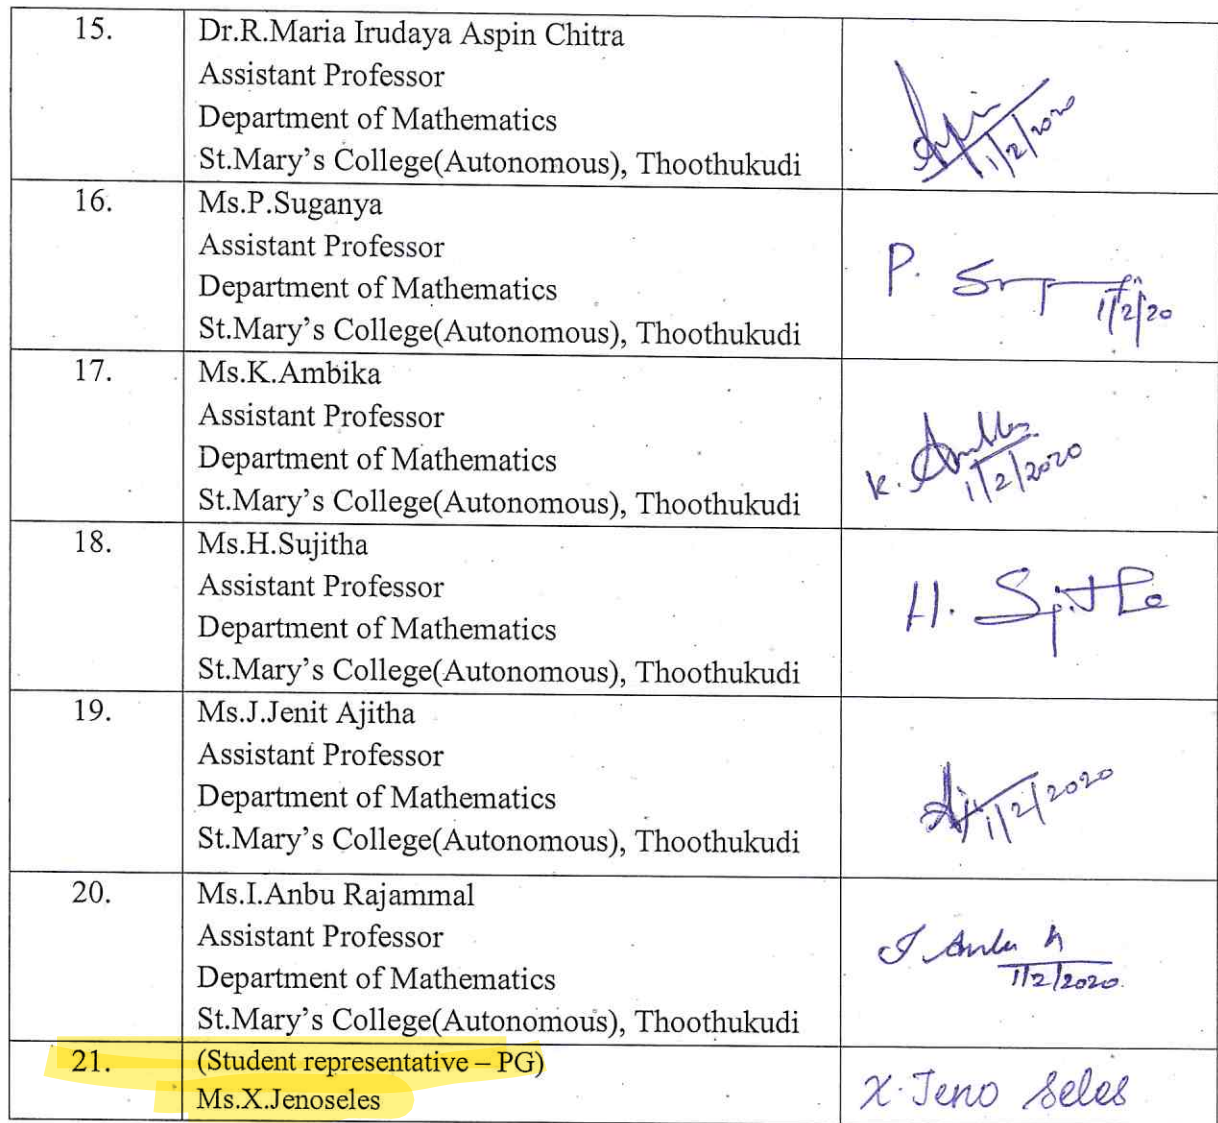 15.
Dr.R.Maria Irudaya Aspin Chitra
Assistant Professor
Department of Mathematics
St.Mary's College(Autonomous), Thoothukudi
1/2/2020
16.
Ms.P.Suganya
Assistant Professor
Department of Mathematics
St.Mary's College(Autonomous), Thoothukudi
P.
1/2/20
17.
Ms.K.Ambika
Assistant Professor
Department of Mathematics
St.Mary's College(Autonomous), Thoothukudi
K.
1/2/2020
18.
Ms.H.Sujitha
Assistant Professor
Department of Mathematics
St.Mary's College(Autonomous), Thoothukudi
H.
19.
Ms.J.Jenit Ajitha
Assistant Professor
Department of Mathematics
St.Mary's College(Autonomous), Thoothukudi
1/2/2020
20.
Ms.I.Anbu Rajammal
Assistant Professor
Department of Mathematics
St.Mary's College(Autonomous), Thoothukudi
1/2/2020
21.
(Student representative – PG)
Ms.X.Jenoseles
X. Jeno Seles